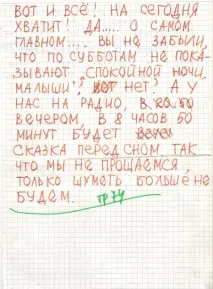 ВОТ И ВСЁ! НА СЕГОДНЯ
ХВАТИТ! ДА.... О САМОМ
ГЛАВНОМ.... ВЫ НЕ ЗАБЫЛИ,
ЧТО ПО СУББОТАМ НЕ ПОКА-
ЗЫВАЮТ „СПОКОЙНОЙ НОЧИ,
МАЛЫШИ"? НЕТ? А У
НАС НА РАДИО,
ВЕЧЕРОМ, В 8 ЧАСОВ 50
МИНУТ БУДЕТ
СКАЗКА ПЕРЕД СНОМ. ТАК
ЧТО МЫ НЕ ПРОЩАЕМСЯ,
ТОЛЬКО ШУМЕТЬ БОЛЬШЕ НЕ
БУДЕМ.